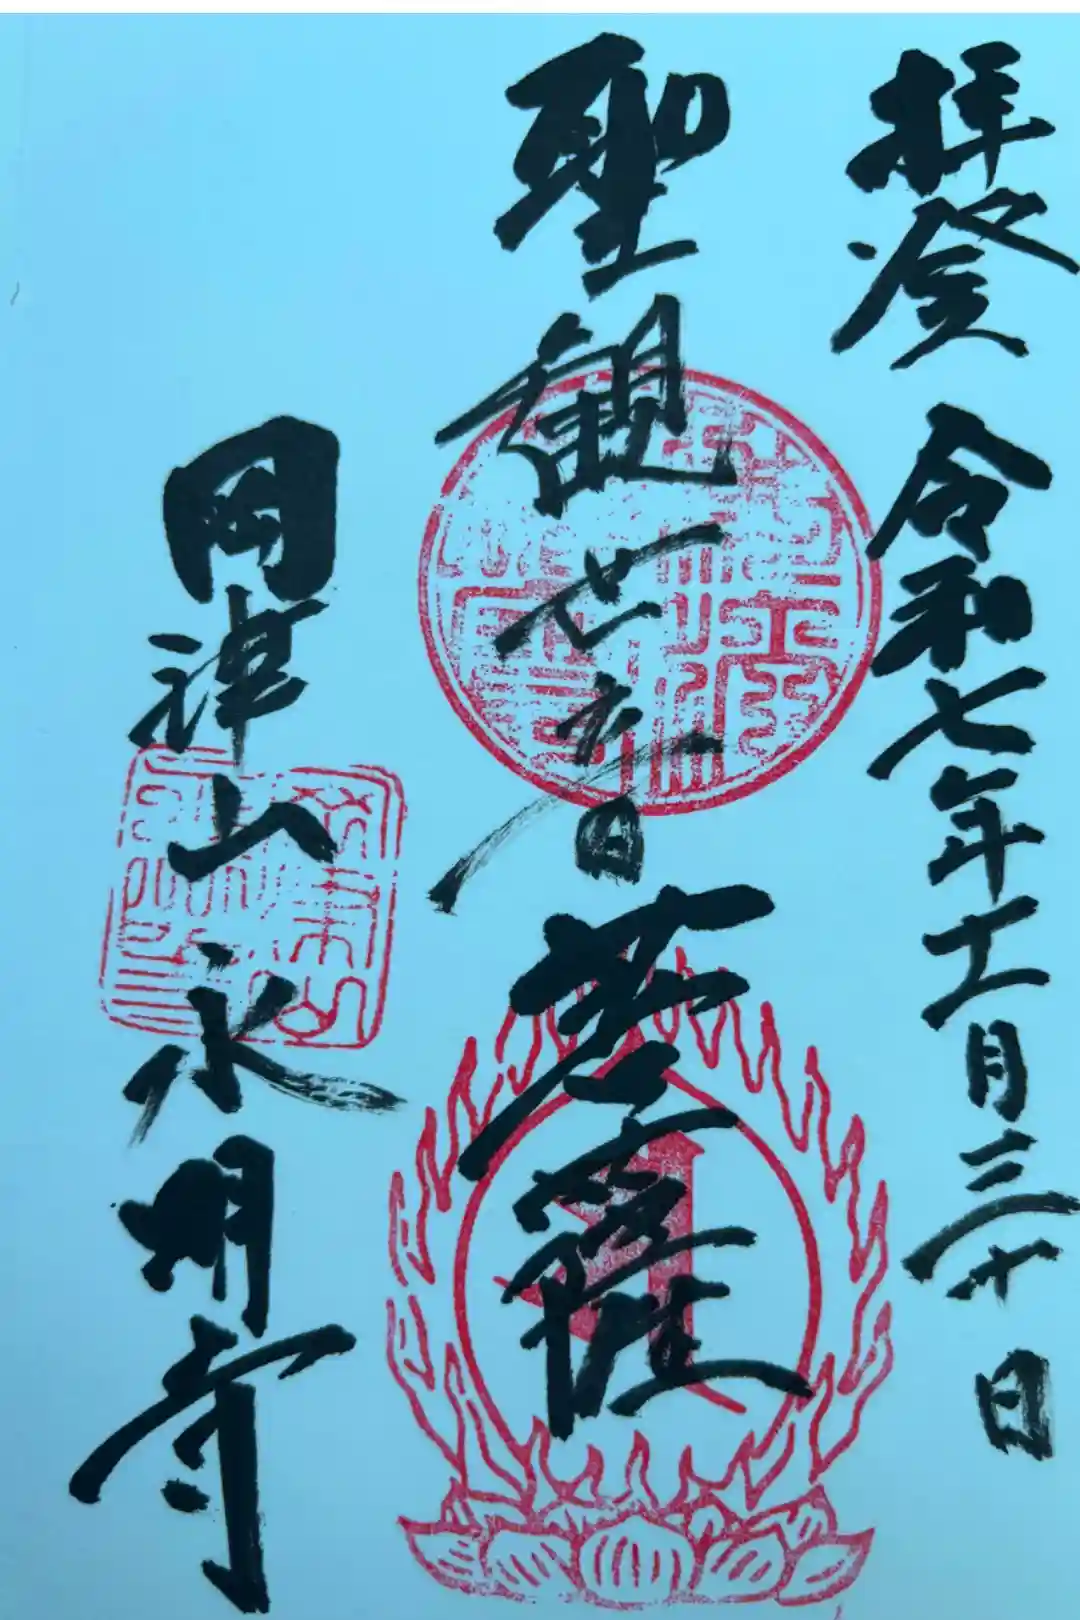 拝登 令和七年十一月三十日
聖観世音菩薩
岡津山永明寺